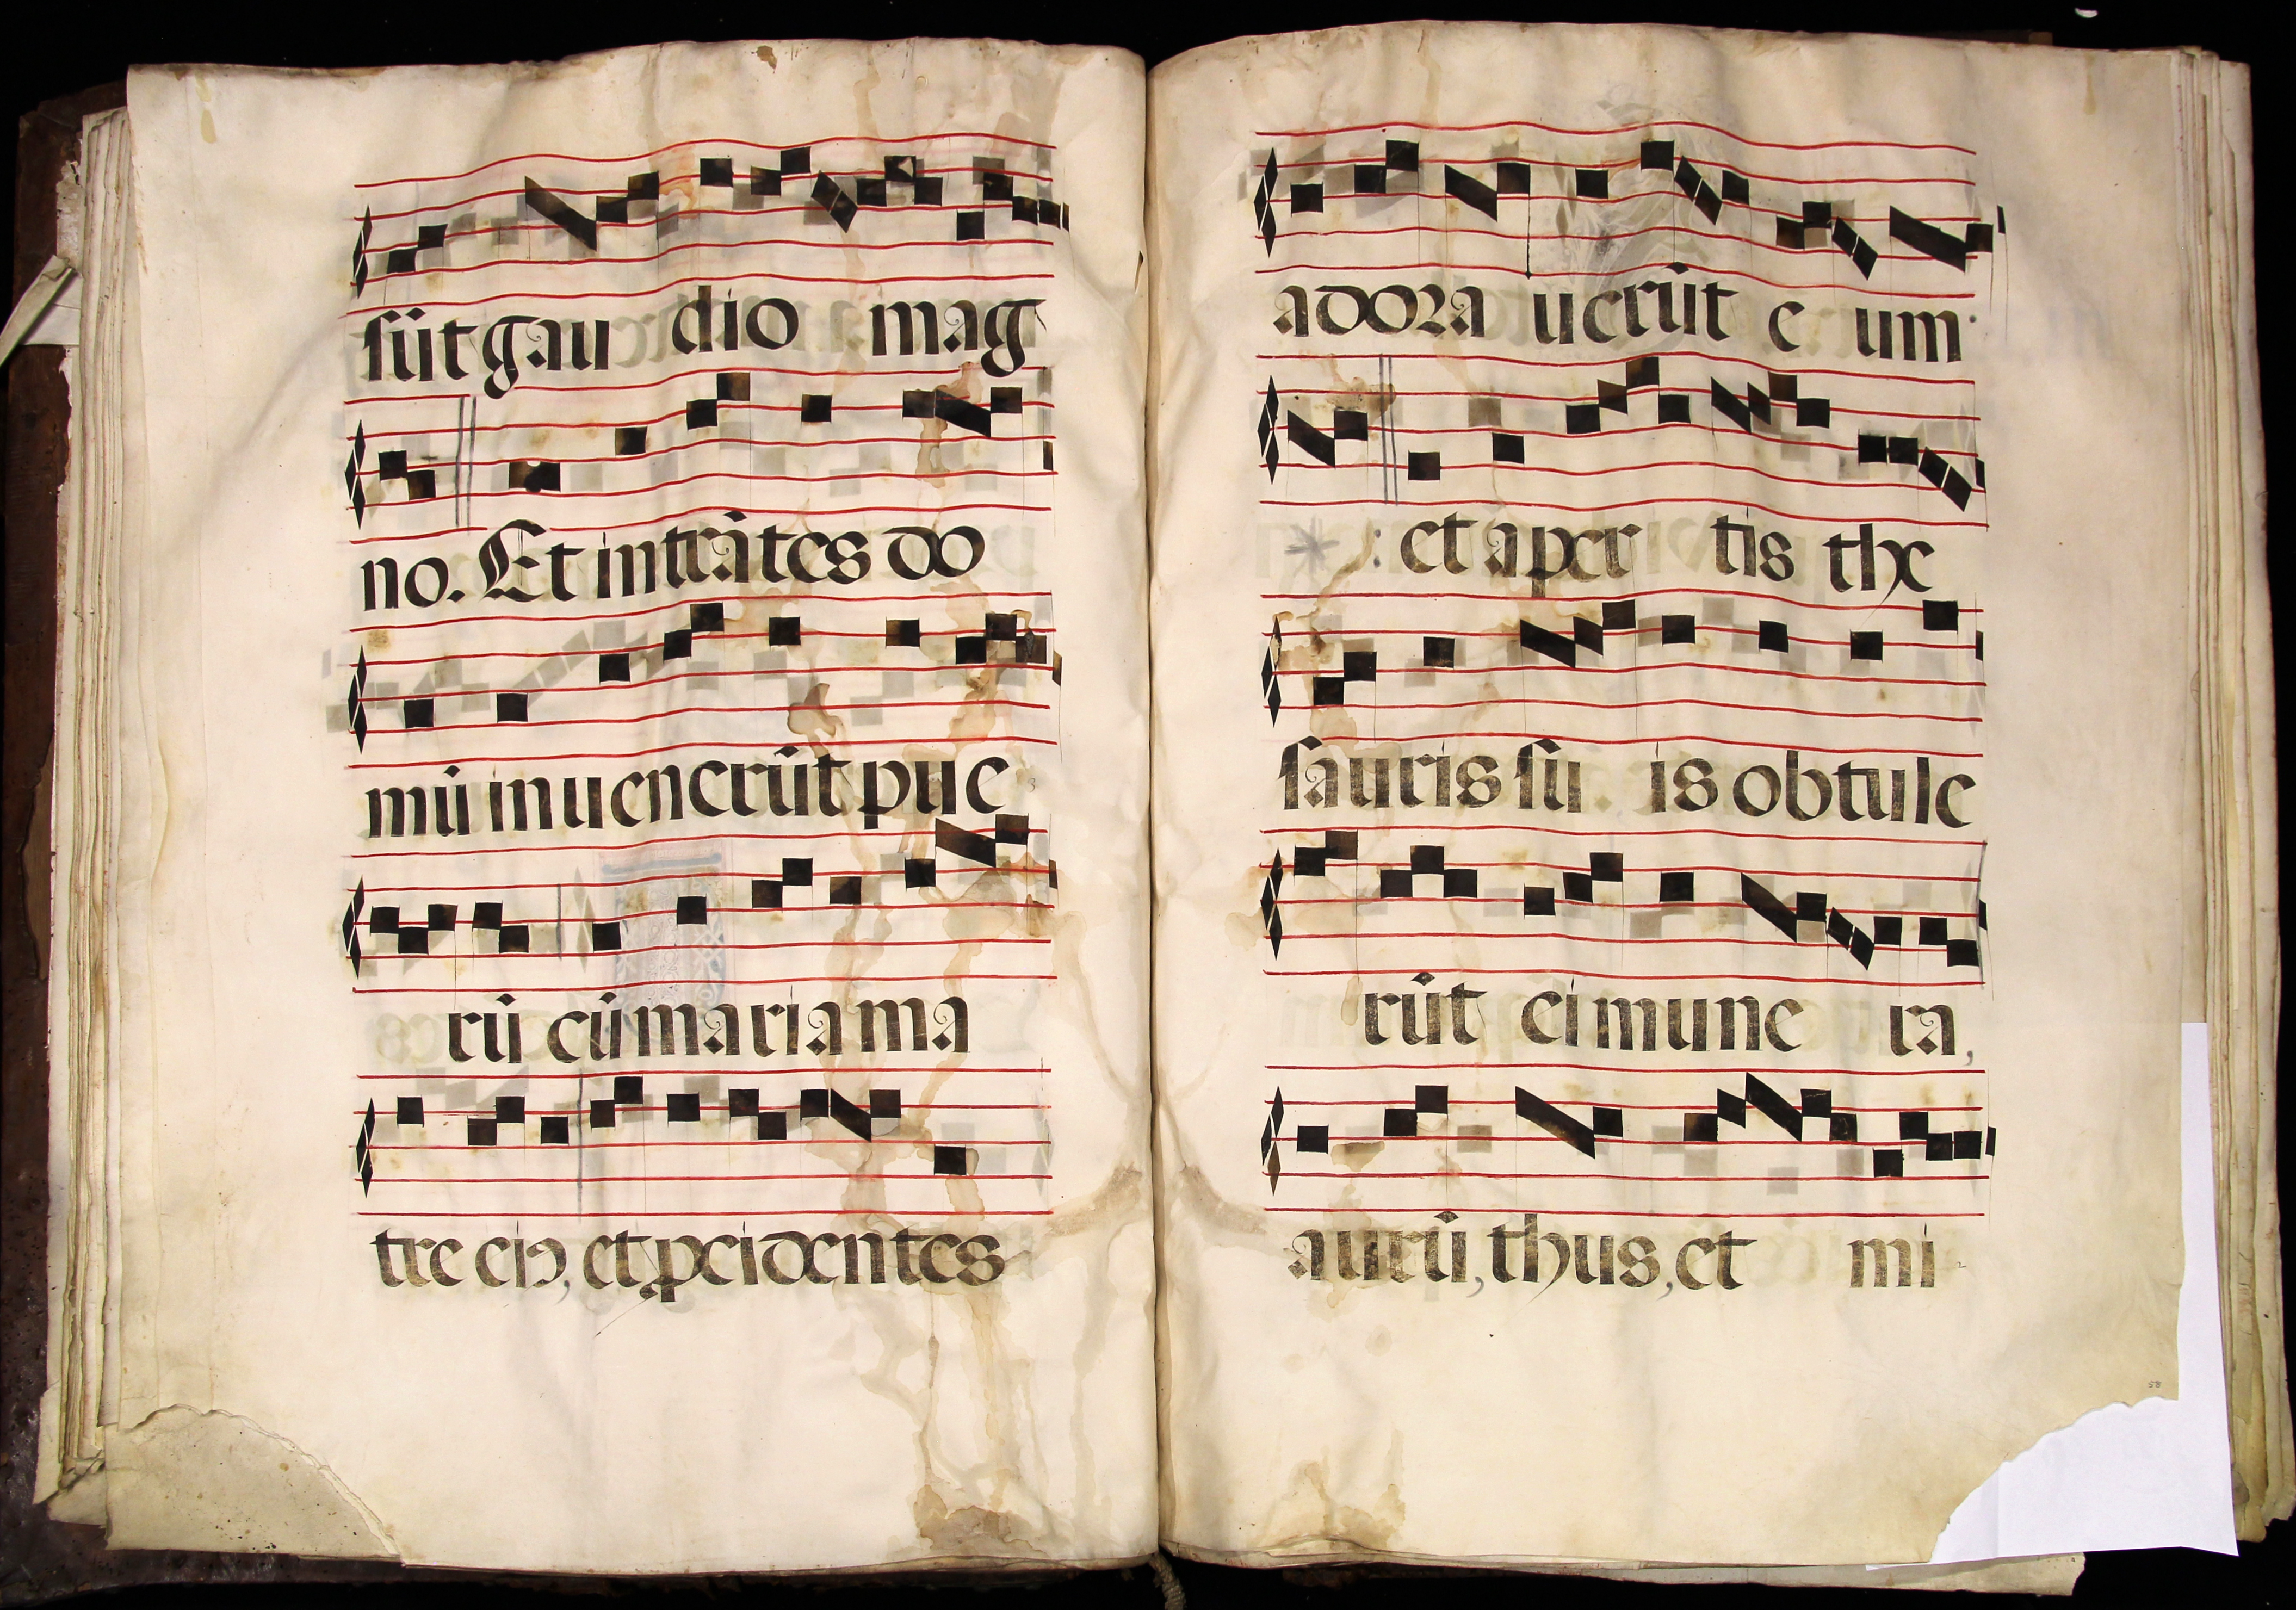 sūt gau dio mag
no. Et intrātes do
mū inuenerūt pue
rū cū maria ma
tre eiꝰ, et ꝓcidentes
adora uerūt e um
: et aper tis the
sauris su is obtule
rūt ei mune ra,
aurū, thus, et mi
58